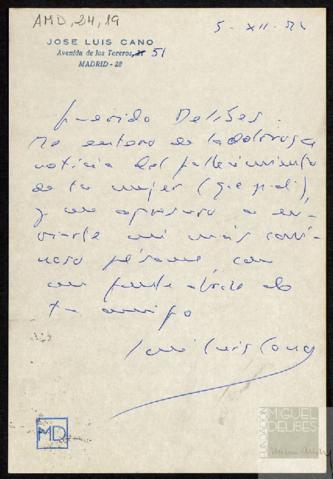 AMD, 24, 19
5-XII-
JOSE LUIS CANO
Avenida de los Toreros, 51
MADRID - 28
Querido Delibes:
Me entero de la dolorosa
noticia del fallecimiento
de tu mujer
y me apresuro a en-
viarte mi más
pésame con
un fuerte abrazo de
tu amigo
José Luis Cano
MD
FUNDACIÓN
MIGUEL
DELIBES